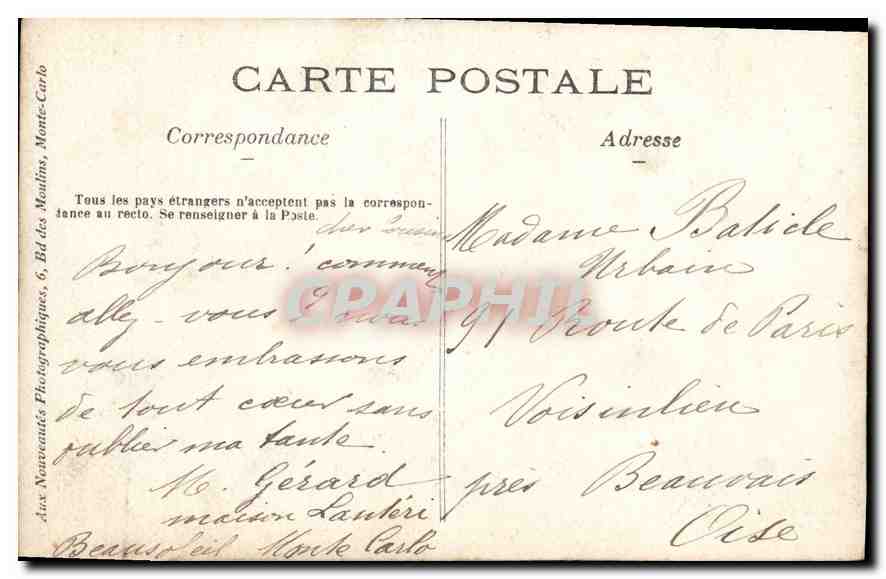 CARTE POSTALE
Correspondance
Tous les pays étrangers n'acceptent pas la correspon-
dance au recto. Se renseigner à la Poste.
cher Cousin
Bonjour ! comment
allez-vous ? nous
vous embrassons
de tout cœur sans
oublier ma tante
M. Gérard
maison Lantéri
Beausoleil Monte Carlo
Adresse
Madame Baticle
Urbain
91 Route de Paris
Voisinlieu
près Beauvais
Oise
Aux Nouveautés Photographiques, 6, Bd des Moulins, Monte-Carlo
CPAPHIL